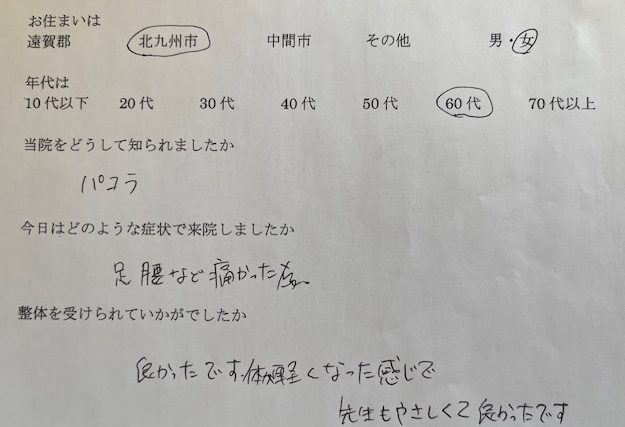 お住まいは
遠賀郡 北九州市 中間市 その他 男・女
年代は
10代以下 20代 30代 40代 50代 60代 70代以上
当院をどうして知られましたか
パコラ
今日はどのような症状で来院しましたか
足腰など痛かった為
整体を受けられていかがでしたか
良かったです体が軽くなった感じで
先生もやさしくて良かったです